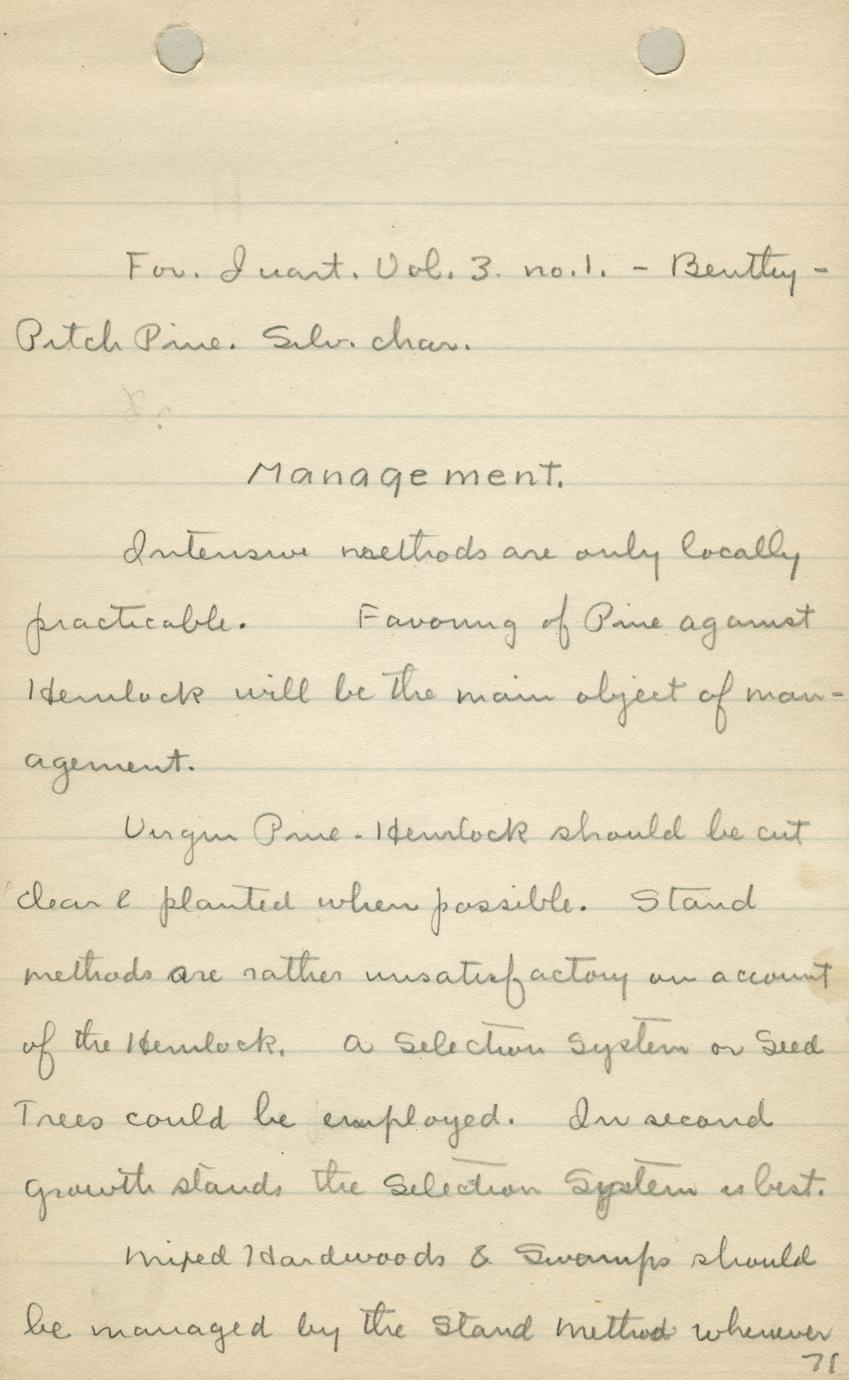 For. Quart. Vol. 3. no. 1. - Bentley -
Pitch Pine. Silv. char.
Management.
Intensive methods are only locally
practicable. Favoring of Pine against
Hemlock will be the main object of man-
agement.
Virgin Pine - Hemlock should be cut
clear & planted when possible. Stand
methods are rather unsatisfactory on account
of the Hemlock. A Selection System or Seed
Trees could be employed. In second
growth stands the Selection System is best.
Mixed Hardwoods & Swamps should
be managed by the Stand Method whenever
71